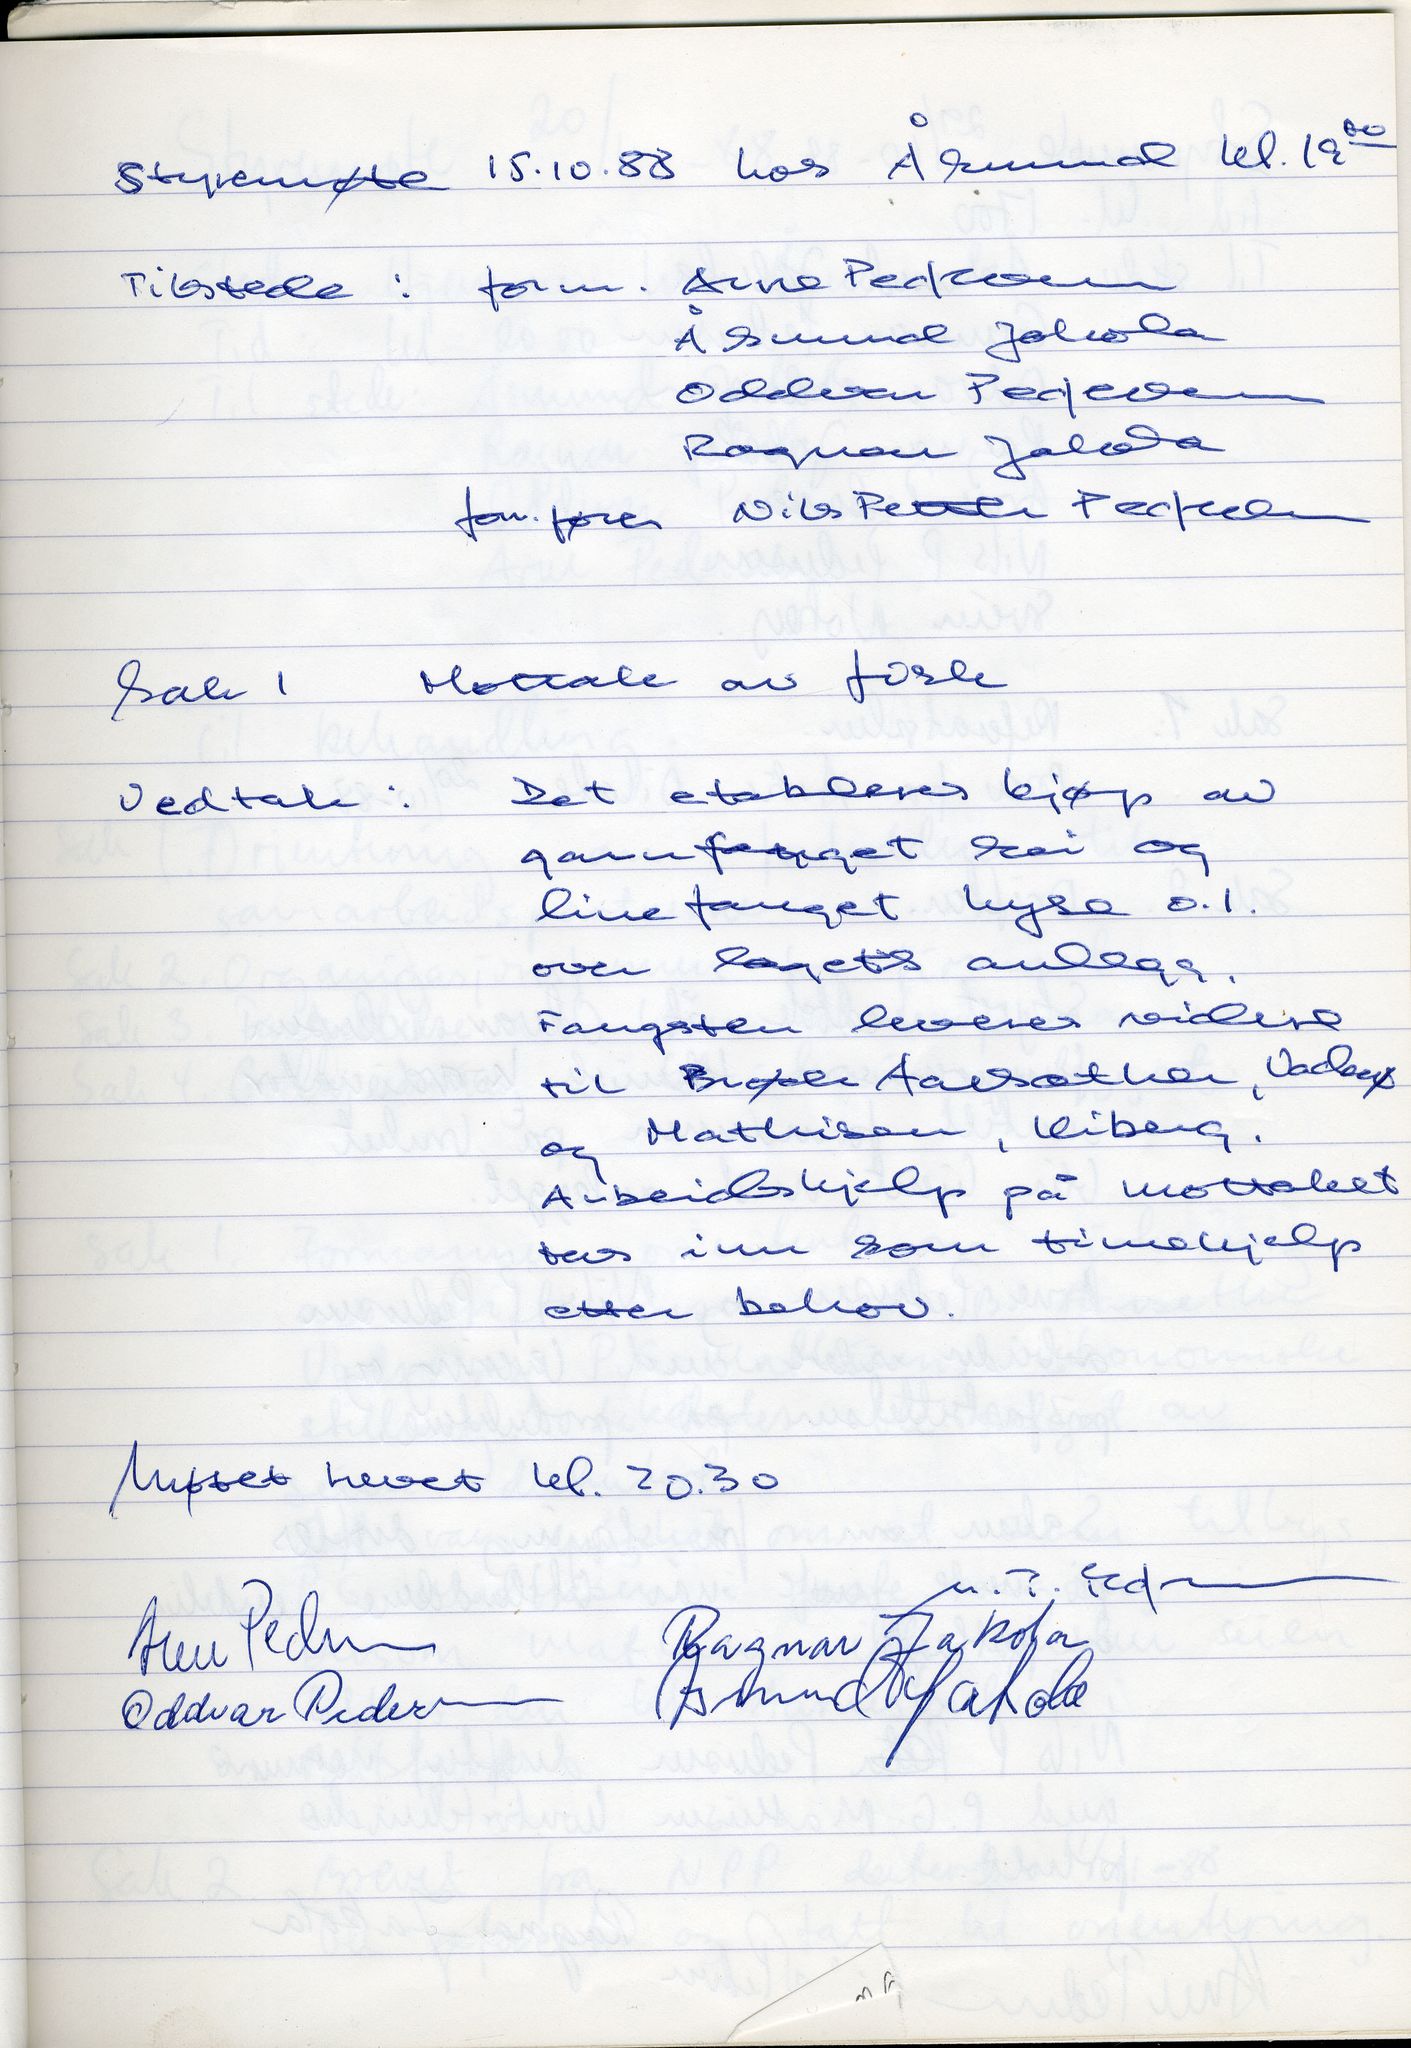 Styremøte 15.10.88 hos Åsmund kl. 19⁰⁰
Tilstede : form. Arne Pedersen
Åsmund Jakola
Oddvar Pedersen
Ragnar Jakola
forr.fører Nils Petter Pedersen
Sak 1 Mottak av fisk
Vedtak : Det etableres kjøp av
garnfanget sei og
linefanget hyse o.l.
over lagets anlegg.
Fangsten leveres videre
til Brødr. Aarsæther, Vadsø
og Mathisen, Kiberg.
Arbeidshjelp på mottaket
tas inn som timehjelp
etter behov.
Møtet hevet kl. 20.30
N. P. Pedersen
Arne Pedersen Ragnar Jakola
Oddvar Pedersen Åsmund Jakola